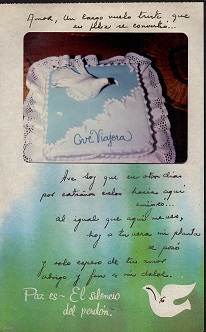 Amor, Un largo vuelo triste que
en Alba se convertía...
Ave Viajera
Ave soy que en otros días
por extraños cielos hacia aquí
emigró...
al igual que aquí me ves,
hoy a tu vera mi planta
se posó
y solo espero de tu amor
abrigo y fin a mi dolor.
Paz es - El silencio
del perdón.